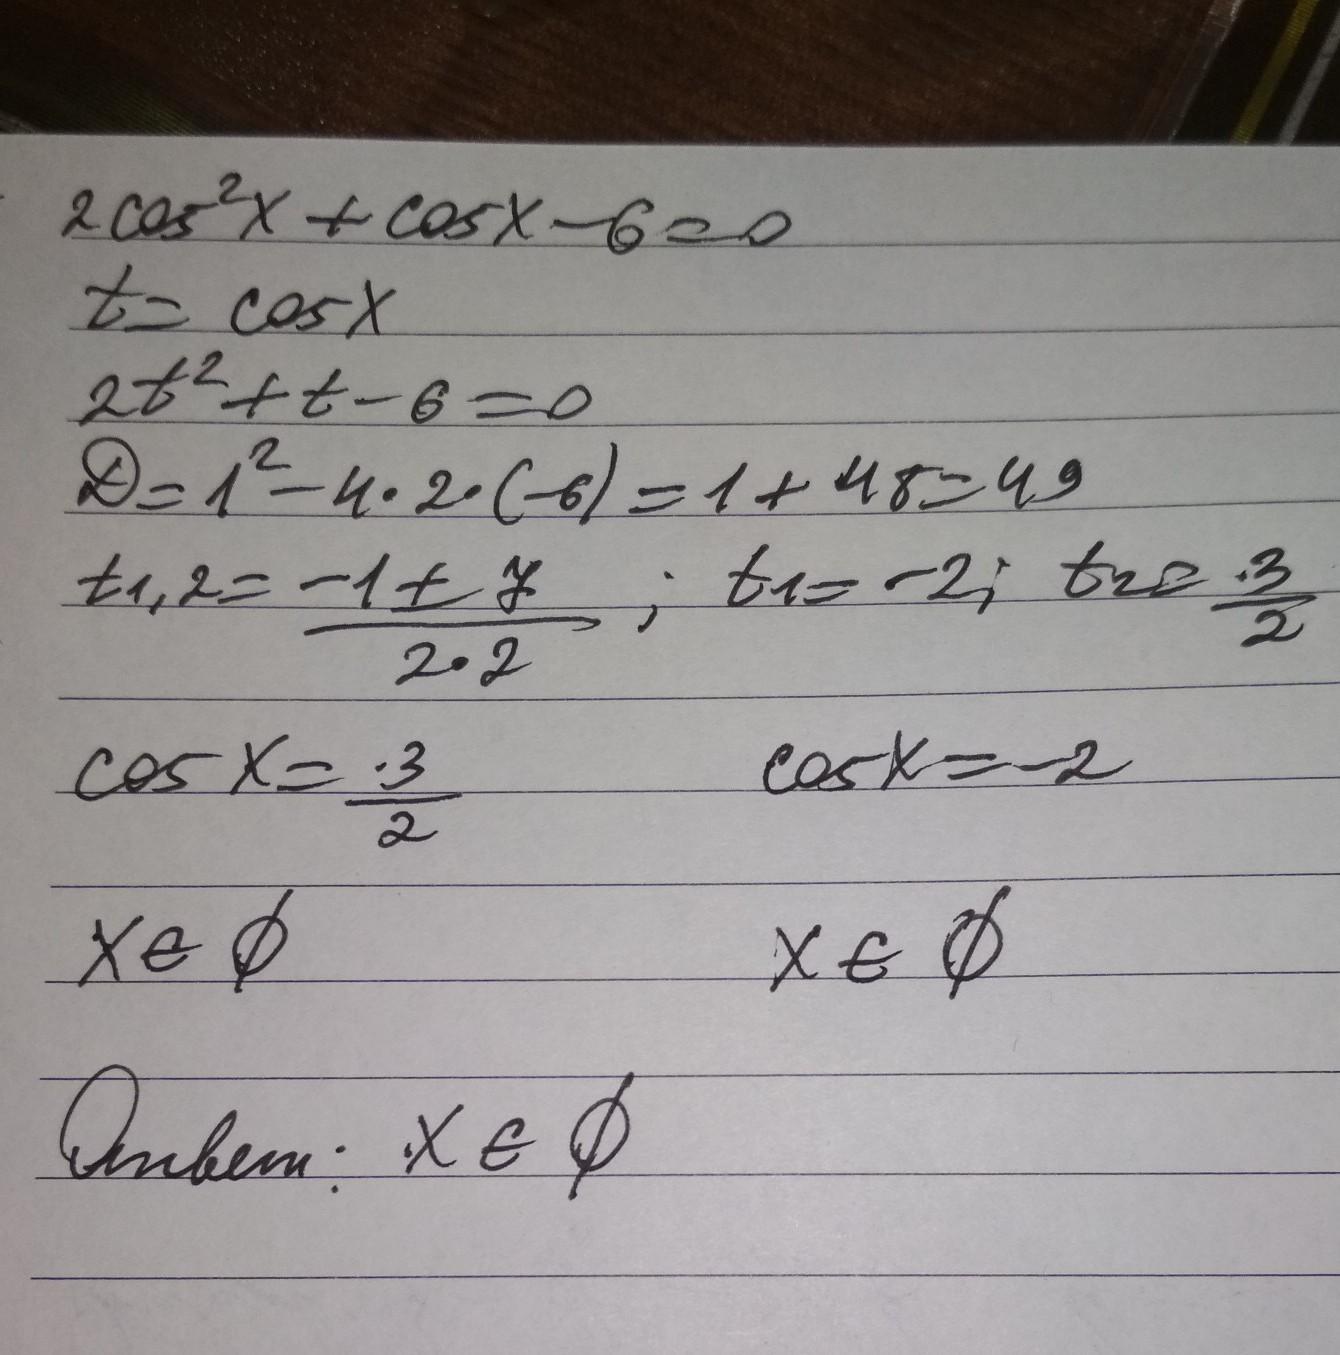 2cos²x + cosx - 6 = 0
t = cosx
2t² + t - 6 = 0
D = 1² - 4·2·(-6) = 1 + 48 = 49
t1,2 = (-1 ± 7)/(2·2) ; t1 = -2; t2 = 3/2
cosx = 3/2 cosx = -2
x ∈ ∅ x ∈ ∅
Ответ: x ∈ ∅